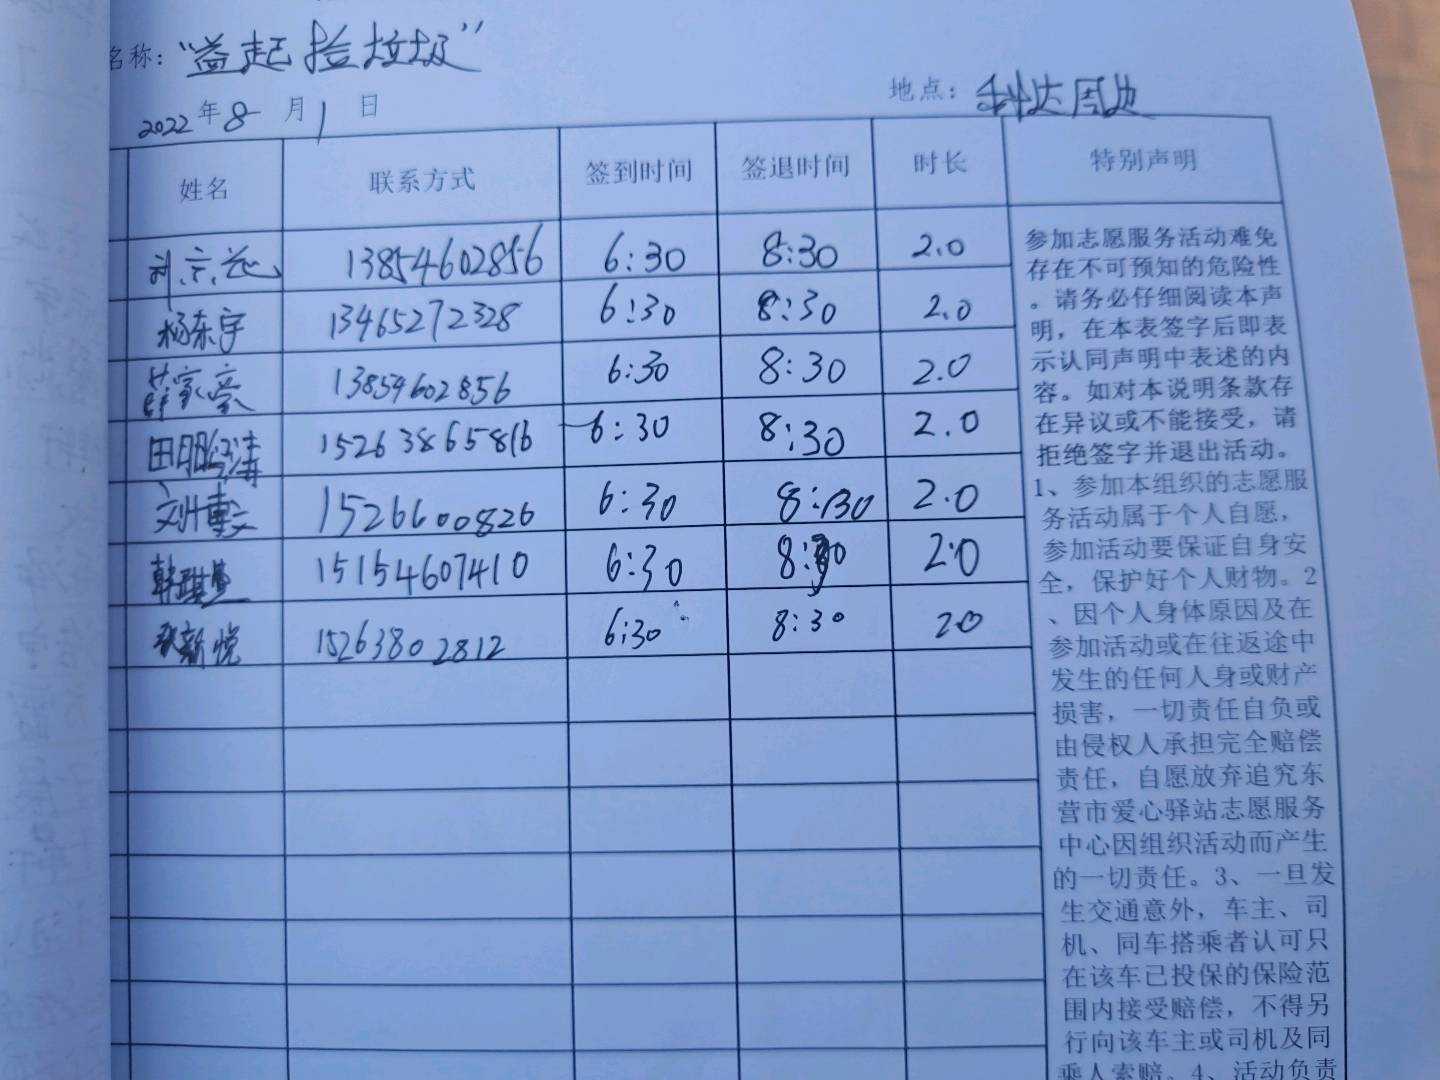 名称：“益起捡垃圾”
2022年8月1日 地点：科达周边
姓名 联系方式 签到时间 签退时间 时长 特别声明
13854602856 6:30 8:30 2.0
杨东宇 13465272328 6:30 8:30 2.0
薛家豪 13854602856 6:30 8:30 2.0
田鹏涛 15263865816 6:30 8:30 2.0
刘博文 15266600826 6:30 8:30 2.0
韩琪 15154607410 6:30 8:30 2.0
新悦 15263802812 6:30 8:30 20
参加志愿服务活动难免
存在不可预知的危险性
。请务必仔细阅读本声
明，在本表签字后即表
示认同声明中表述的内
容。如对本说明条款存
在异议或不能接受，请
拒绝签字并退出活动。
1、参加本组织的志愿服
务活动属于个人自愿，
参加活动要保证自身安
全，保护好个人财物。2
、因个人身体原因及在
参加活动或在往返途中
发生的任何人身或财产
损害，一切责任自负或
由侵权人承担完全赔偿
责任，自愿放弃追究东
营市爱心驿站志愿服务
中心因组织活动而产生
的一切责任。3、一旦发
生交通意外，车主、司
机、同车搭乘者认可只
在该车已投保的保险范
围内接受赔偿，不得另
行向该车主或司机及同
乘人索赔。4、活动负责